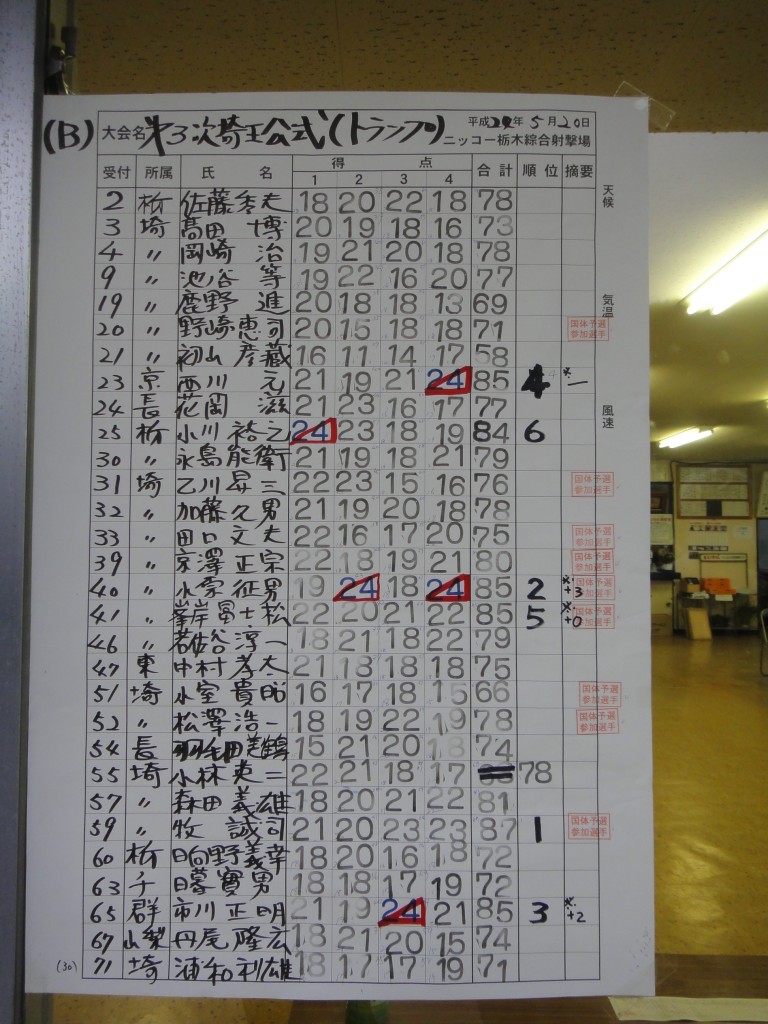 (B) 大会名 第3次埼玉公式(トランプ) 平成24年5月20日
ニッコー栃木綜合射撃場
受付 所属 氏 名 得 点 合計 順位 摘要
1 2 3 4
天候
気温
風速
2 栃 佐藤秀夫 18 20 22 18 78
3 埼 髙田 博 20 19 18 16 73
4 〃 岡崎 治 19 21 20 18 78
9 〃 池谷 等 19 22 16 20 77
19 〃 鹿野 進 20 18 18 13 69
20 〃 野崎恵司 20 15 18 18 71 国体予選参加選手
21 〃 初山彦蔵 16 11 14 17 58
23 京 西川 元 21 19 21 24 85 4 ※ー
24 長 花岡 滋 21 23 16 17 77
25 栃 小川裕之 24 23 18 19 84 6
30 〃 永島能衛 21 19 18 21 79
31 埼 乙川昇三 22 23 15 16 76 国体予選参加選手
32 〃 加藤久男 21 19 20 18 78
33 〃 田口文夫 22 16 17 20 75 国体予選参加選手
39 〃 京澤正宗 22 18 19 21 80 国体予選参加選手
40 〃 征男 19 24 18 24 85 2 ※+3 国体予選参加選手
41 〃 峯岸冨士松 22 20 21 22 85 5 ※+0 国体予選参加選手
46 〃 淳一 18 21 18 22 79
47 東 中村孝太 21 18 18 18 75
51 埼 小室貴昭 16 17 18 15 66 国体予選参加選手
52 〃 松澤浩一 18 19 22 19 78 国体予選参加選手
54 長 15 21 20 18 74
55 埼 小林英二 22 21 18 17 78
57 〃 森田義雄 18 20 21 22 81
59 〃 牧 誠司 21 20 23 23 87 1 国体予選参加選手
60 栃 日向野義幸 18 20 16 18 72
63 千 日暮寶男 18 18 17 19 72
65 群 市川正明 21 19 24 21 85 3 ※+2
67 山梨 丹尾隆広 18 21 20 15 74
(30) 71 埼 浦和利雄 18 17 17 19 71